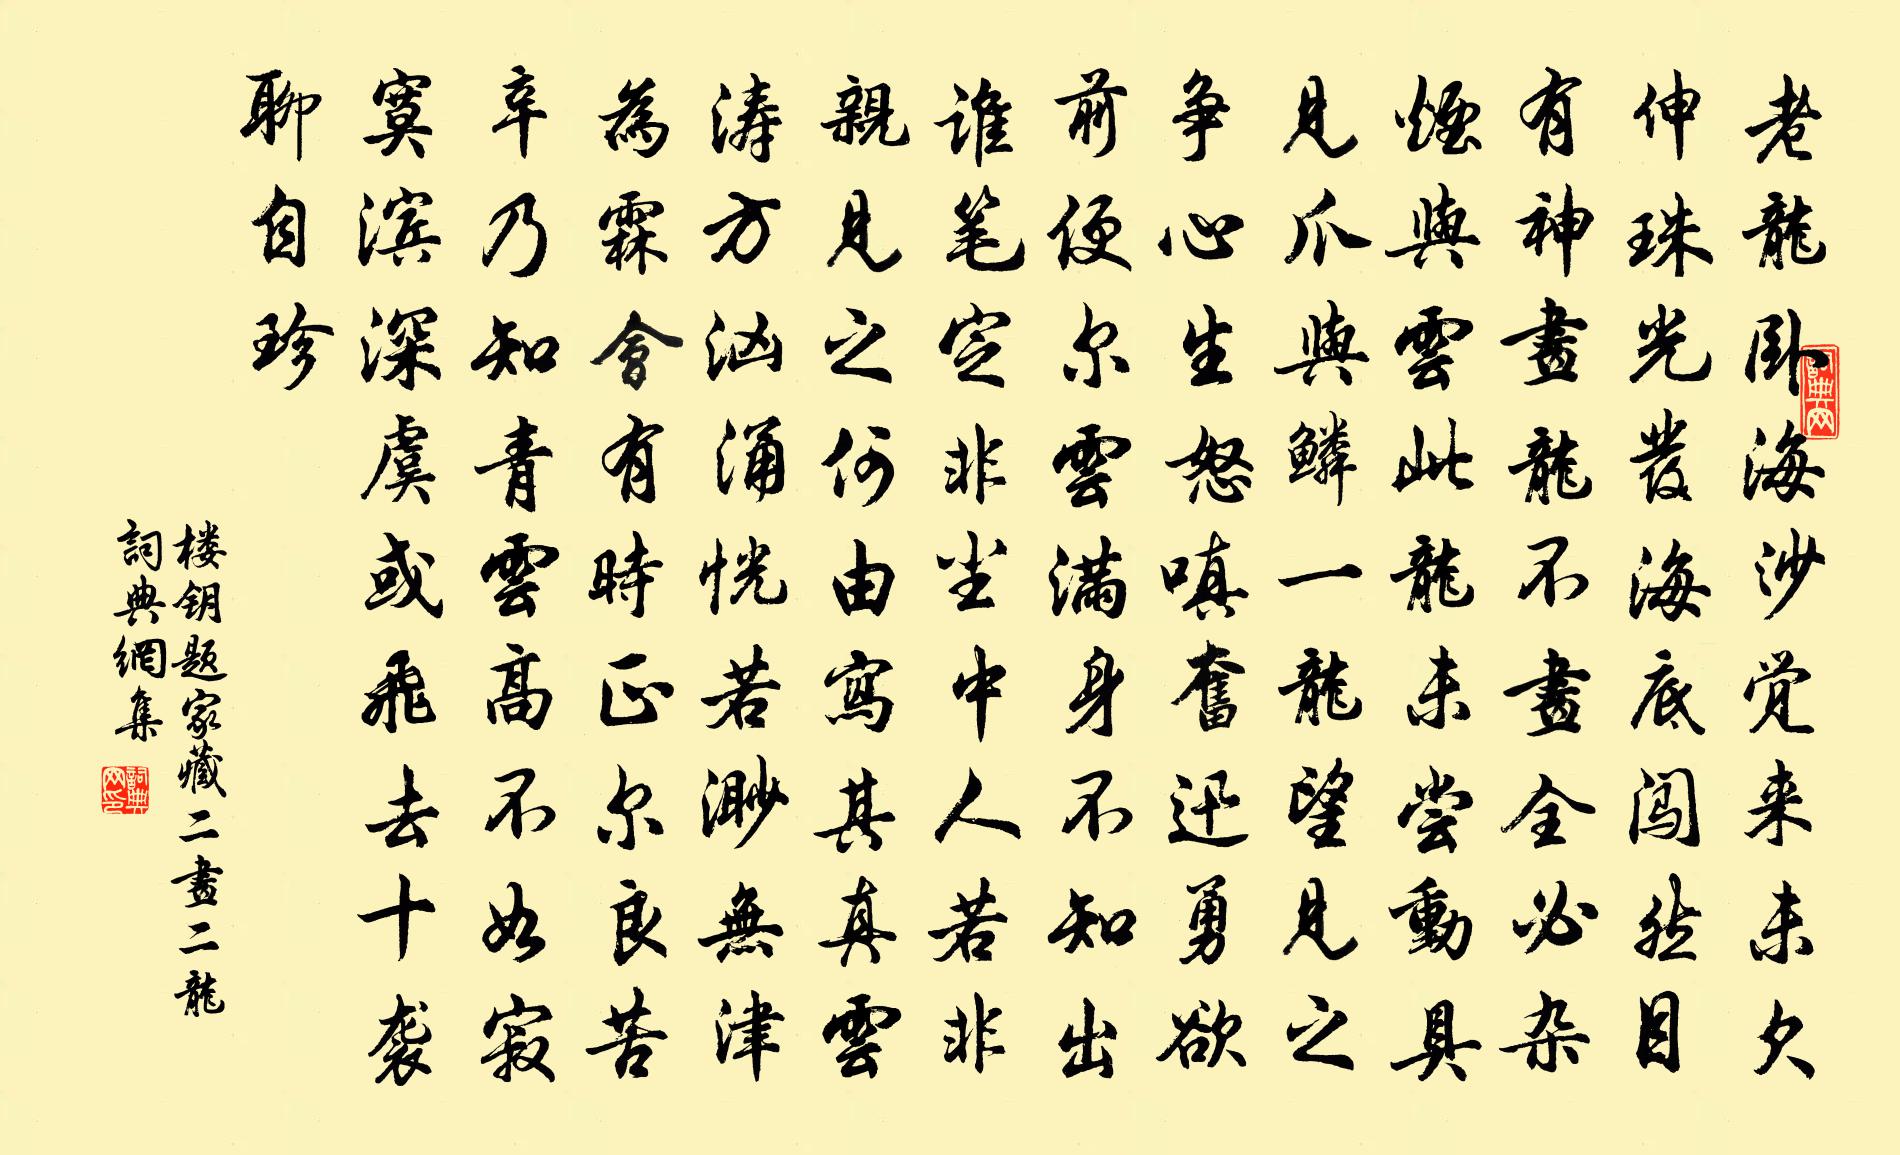 老龍卧海沙觉来未久
伸珠光發海底闯然目
有神畫龍不畫全必杂
煙與雲此龍未尝動具
見爪與鳞一龍望見之
争心生怒嗔奮迅勇欲
前便尔雲满身不知出
谁笔定非尘中人若非
親見之何由寫其真雲
涛方汹涌恍若渺無津
為霖會有時正尔良苦
辛乃知青雲高不如寂
寞滨深虞或飛去十袭
聊自珍
楼钥题家藏二畫二龍
詞典網集
詞典网
詞典网印